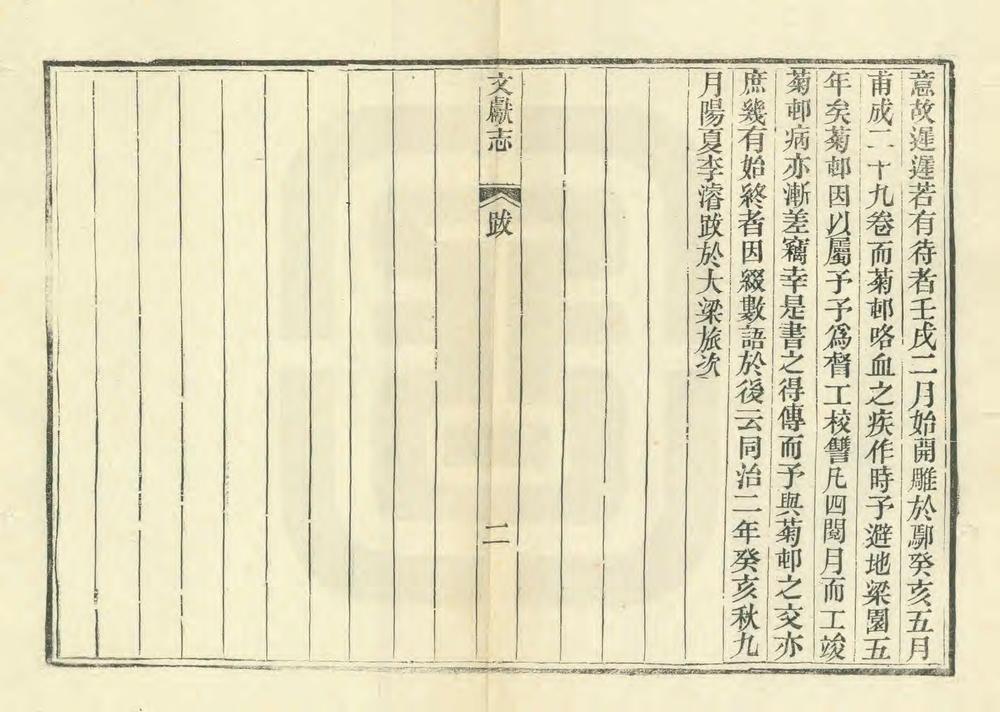 意故遲遲若有待者壬戌二月始開雕於鄢癸亥五月
甫成二十九卷而菊邨咯血之疾作時予避地梁園五
年矣菊邨因以屬予予爲督工校讐凡四閱月而工竣
菊邨病亦漸差竊幸是書之得傳而予與菊邨之交亦
庶幾有始終者因綴數語於後云同治二年癸亥秋九
月陽夏李濬跋於大梁旅次
文獻志
跋
二